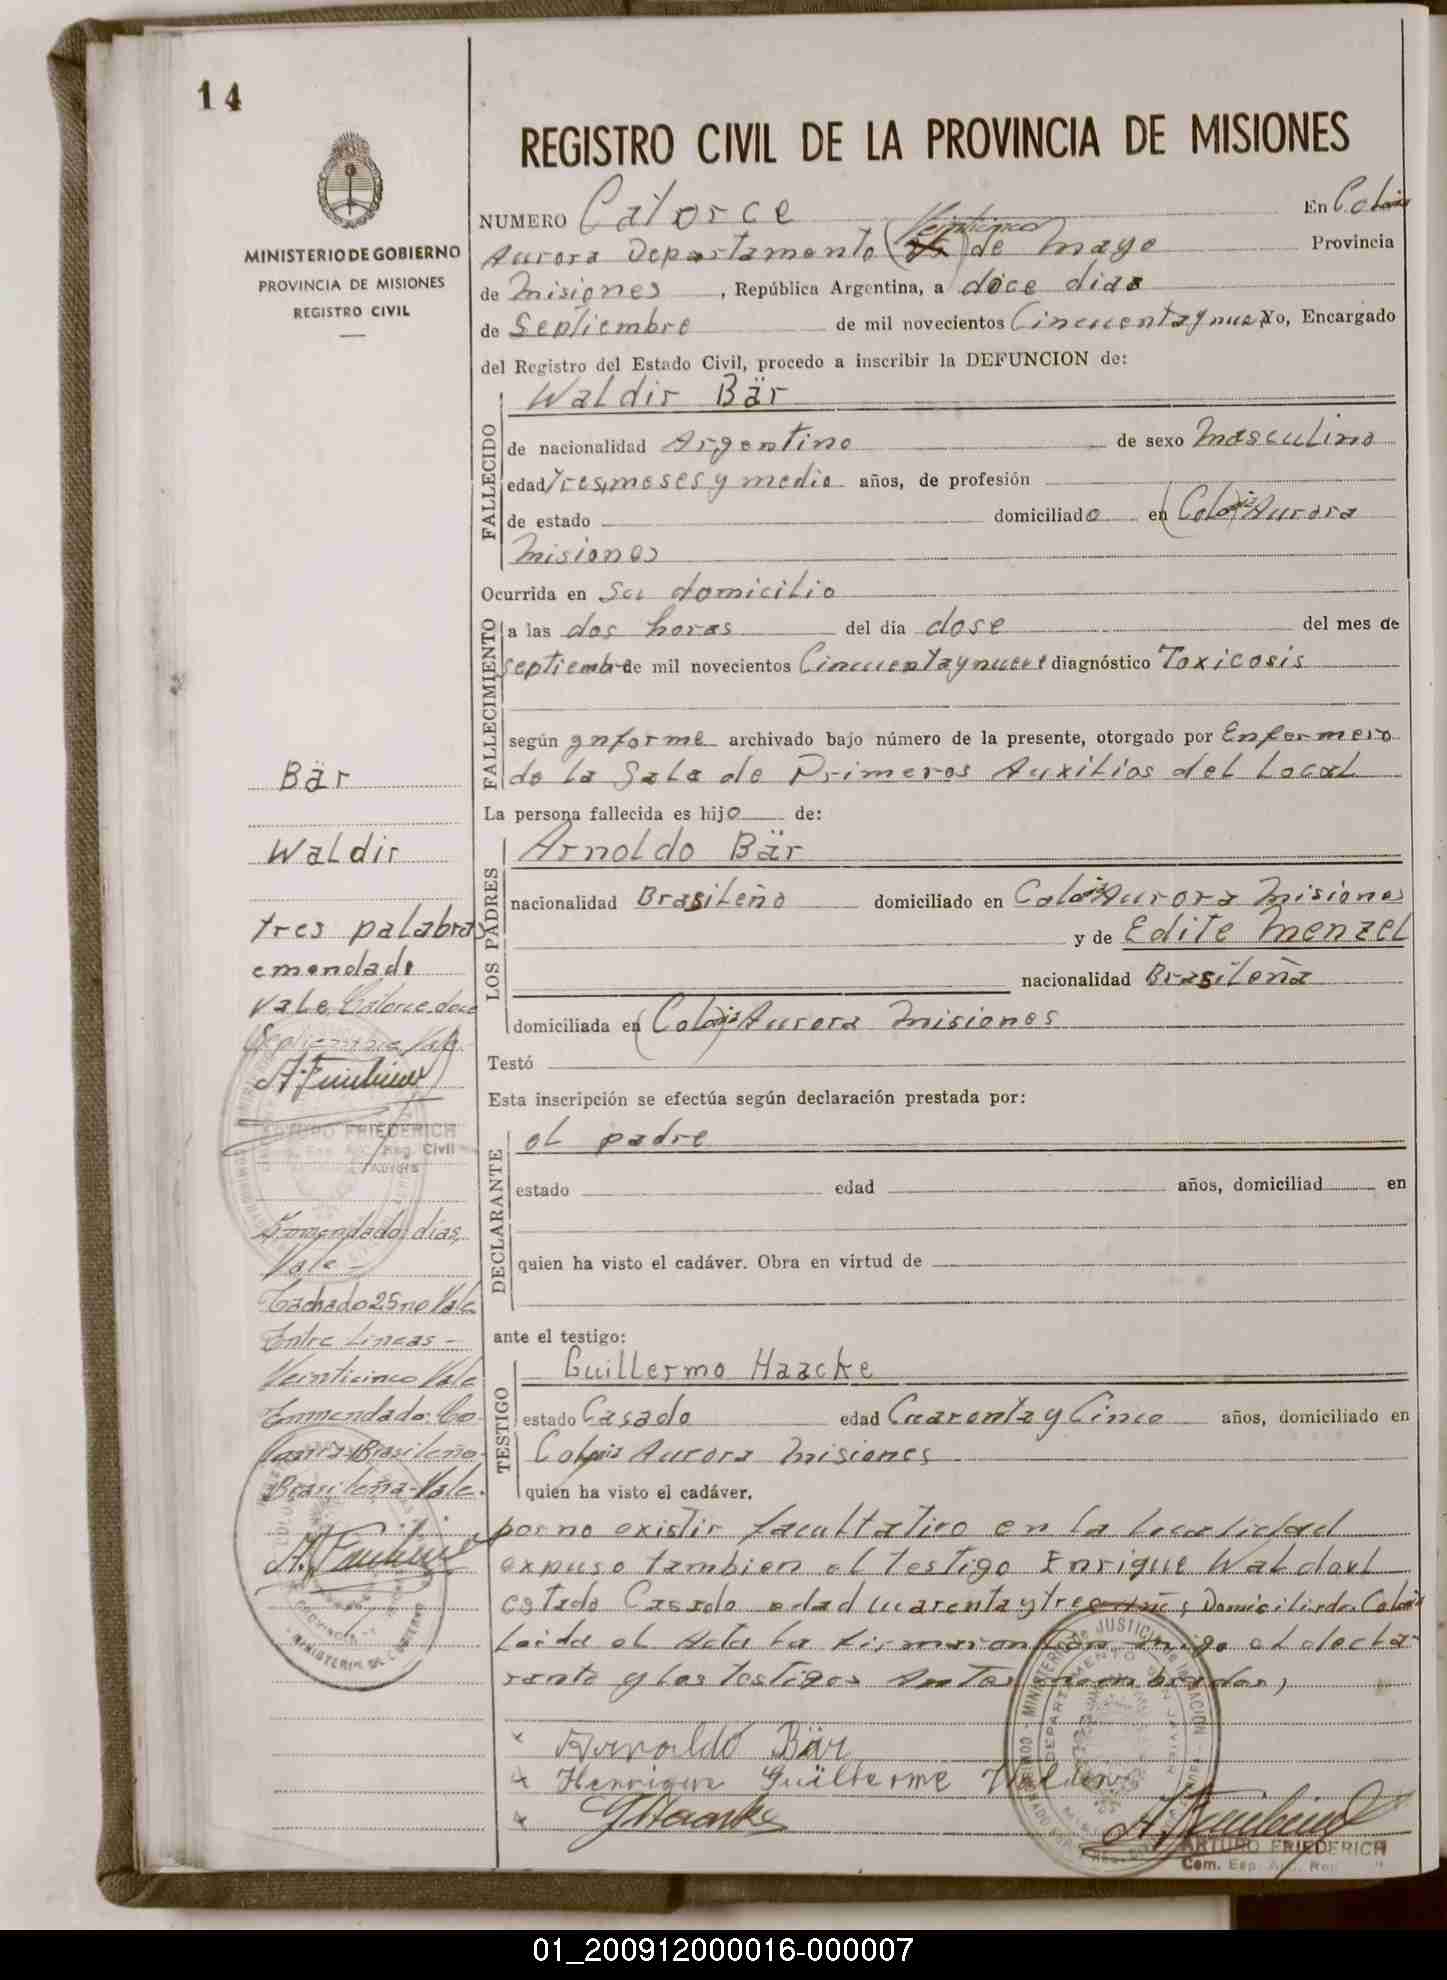 14
REGISTRO CIVIL DE LA PROVINCIA DE MISIONES
MINISTERIO DE GOBIERNO
PROVINCIA DE MISIONES
REGISTRO CIVIL
NUMERO Catorce En Colonia
Veinticinco
Aurora Departamento (25) de mayo Provincia
de Misiones, República Argentina, a doce dias
de Septiembre de mil novecientos Cincuentaynueve Yo, Encargado
del Registro del Estado Civil, procedo a inscribir la DEFUNCION de:
FALLECIDO
Waldir Bär
de nacionalidad Argentino de sexo Masculino
edad tres meses y medio años, de profesión
de estado domiciliado en (Colonia Aurora
Misiones
Ocurrida en Su domicilio
FALLECIMIENTO
a las dos horas del día dose del mes de
septiembre de mil novecientos Cincuentaynueve diagnóstico Toxicosis
según ynforme archivado bajo número de la presente, otorgado por Enfermero
de la Sala de Primeros Auxilios del Local
La persona fallecida es hijo de:
LOS PADRES
Arnoldo Bär
nacionalidad Brasileño domiciliado en Colonia Aurora Misiones
y de Edite Menzel
nacionalidad Brasileña
domiciliada en (Colonia Aurora Misiones
Testó
Esta inscripción se efectúa según declaración prestada por:
DECLARANTE
el padre
estado edad años, domiciliad en
quien ha visto el cadáver. Obra en virtud de
ante el testigo:
TESTIGO
Guillermo Haacke
estado Casado edad Cuarenta y Cinco años, domiciliado en
Colonia Aurora Misiones
quien ha visto el cadáver.
por no existir facultativo en la localidad
expuso tambien el testigo Enrique
estado Casado edad cuarentaytres años Domiciliado Colonia
Leida el Acta la firmaron con migo el decla-
rante y los testigos Antes nombrados,
Bär
Waldir
tres palabras
emendado
vale Catorce, doce
Septiembre Vale
ARTURO FRIEDERICH
Enmendado: dias,
Vale -
Tachado 25 no Vale
Entre Lineas -
Veinticinco Vale
Enmendado: Co-
lonia Brasileño-
Brasileña - Vale.
Arnoldo Bär
Henrique Guilherme
GHaacke
ARTURO FRIEDERICH
01_200912000016-000007